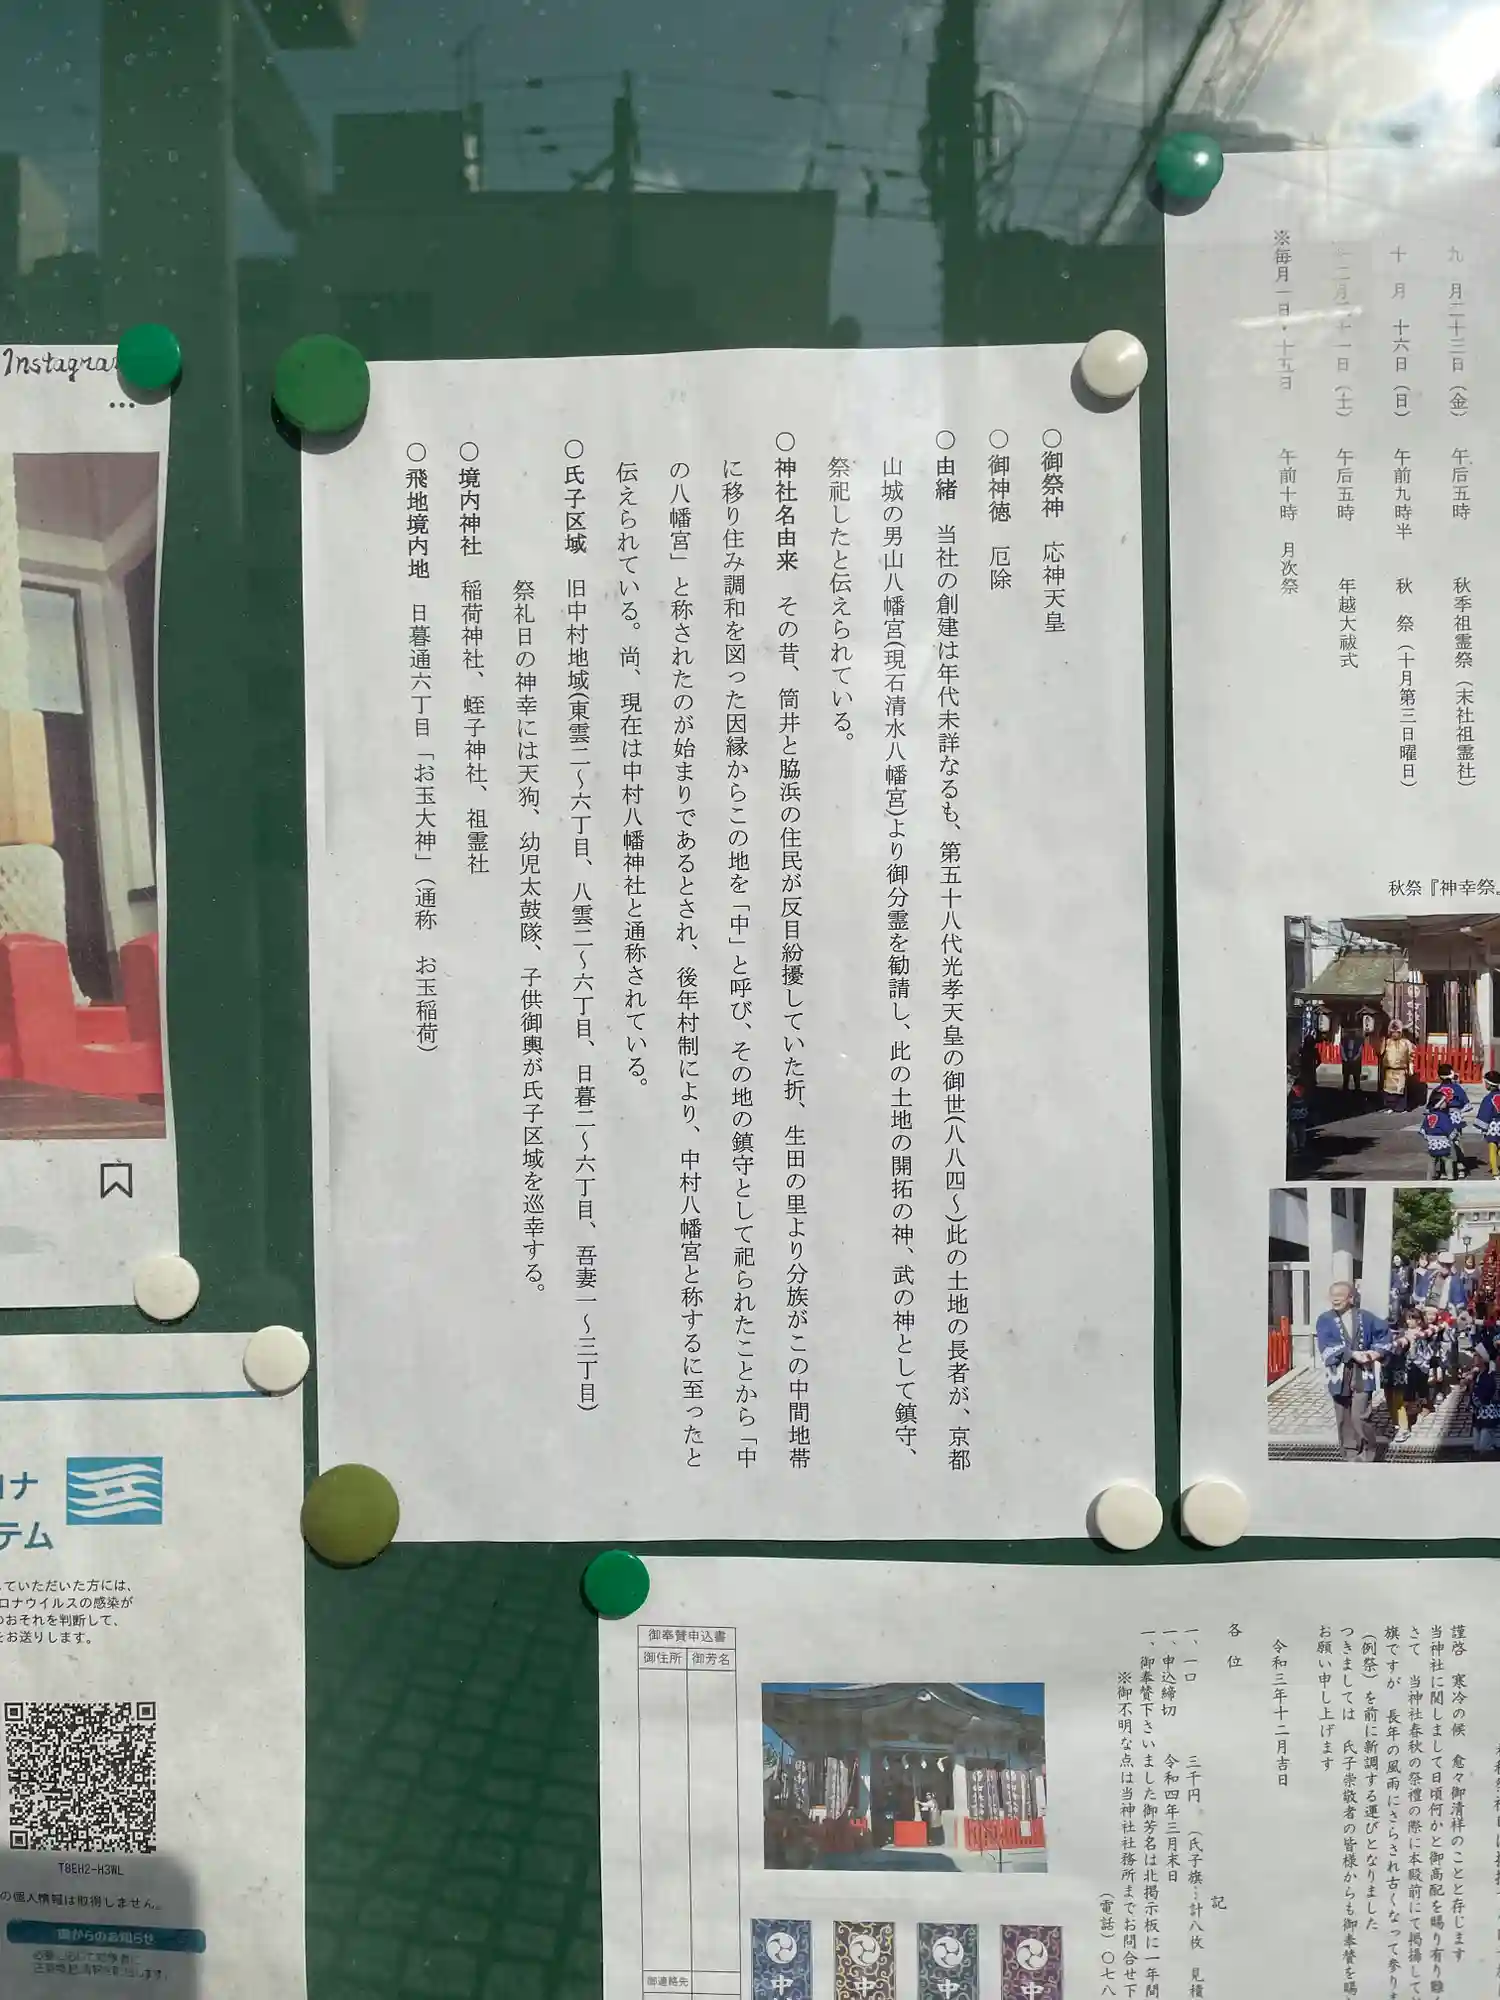 ○御祭神　応神天皇
○御神徳　厄除
○由緒　当社の創建は年代未詳なるも、第五十八代光孝天皇の御世(八八四～)此の土地の長者が、京都
山城の男山八幡宮(現石清水八幡宮)より御分霊を勧請し、此の土地の開拓の神、武の神として鎮守、
祭祀したと伝えられている。
○神社名由来　その昔、筒井と脇浜の住民が反目紛擾していた折、生田の里より分族がこの中間地帯
に移り住み調和を図った因縁からこの地を「中」と呼び、その地の鎮守として祀られたことから「中
の八幡宮」と称されたのが始まりであるとされ、後年村制により、中村八幡宮と称するに至ったと
伝えられている。尚、現在は中村八幡神社と通称されている。
○氏子区域　旧中村地域(東雲二～六丁目、八雲二～六丁目、日暮二～六丁目、吾妻一～三丁目)
祭礼日の神幸には天狗、幼児太鼓隊、子供御輿が氏子区域を巡幸する。
○境内神社　稲荷神社、蛭子神社、祖霊社
○飛地境内地　日暮通六丁目「お玉大神」（通称　お玉稲荷）
九　月二十三日（金）　午后五時　秋季祖霊祭（末社祖霊社）
十　月　十六日（日）　午前九時半　秋　祭（十月第三日曜日）
（土）　午后五時　年越大祓式
※毎月一日・十五日　午前十時　月次祭
秋祭『神幸祭
Instagra
ロナ
テム
していただいた方には、
ロナウイルスの感染が
のおそれを判断して、
をお送りします。
T8EH2-H3WL
の個人情報は取得しません。
国からのお知らせ
謹啓　寒冷の候　愈々御清祥のことと存じます
当神社に関しまして日頃何かと御高配を賜り有り難
さて　当神社春秋の祭禮の際に本殿前にて掲揚して
旗ですが　長年の風雨にさらされ古くなって参り
（例祭）を前に新調する運びとなりました
つきましては　氏子崇敬者の皆様からも御奉賛を賜
お願い申し上げます
令和三年十二月吉日
各　位
記
一、一口　三千円　（氏子旗…計八枚　見積
一、申込締切　令和四年三月末日
一、御奉賛下さいました御芳名は北掲示板に一年間
※御不明な点は当神社社務所までお問合せ下
（電話）〇七八
御奉賛申込書
御住所　御芳名
御連絡先
中
中
中
中